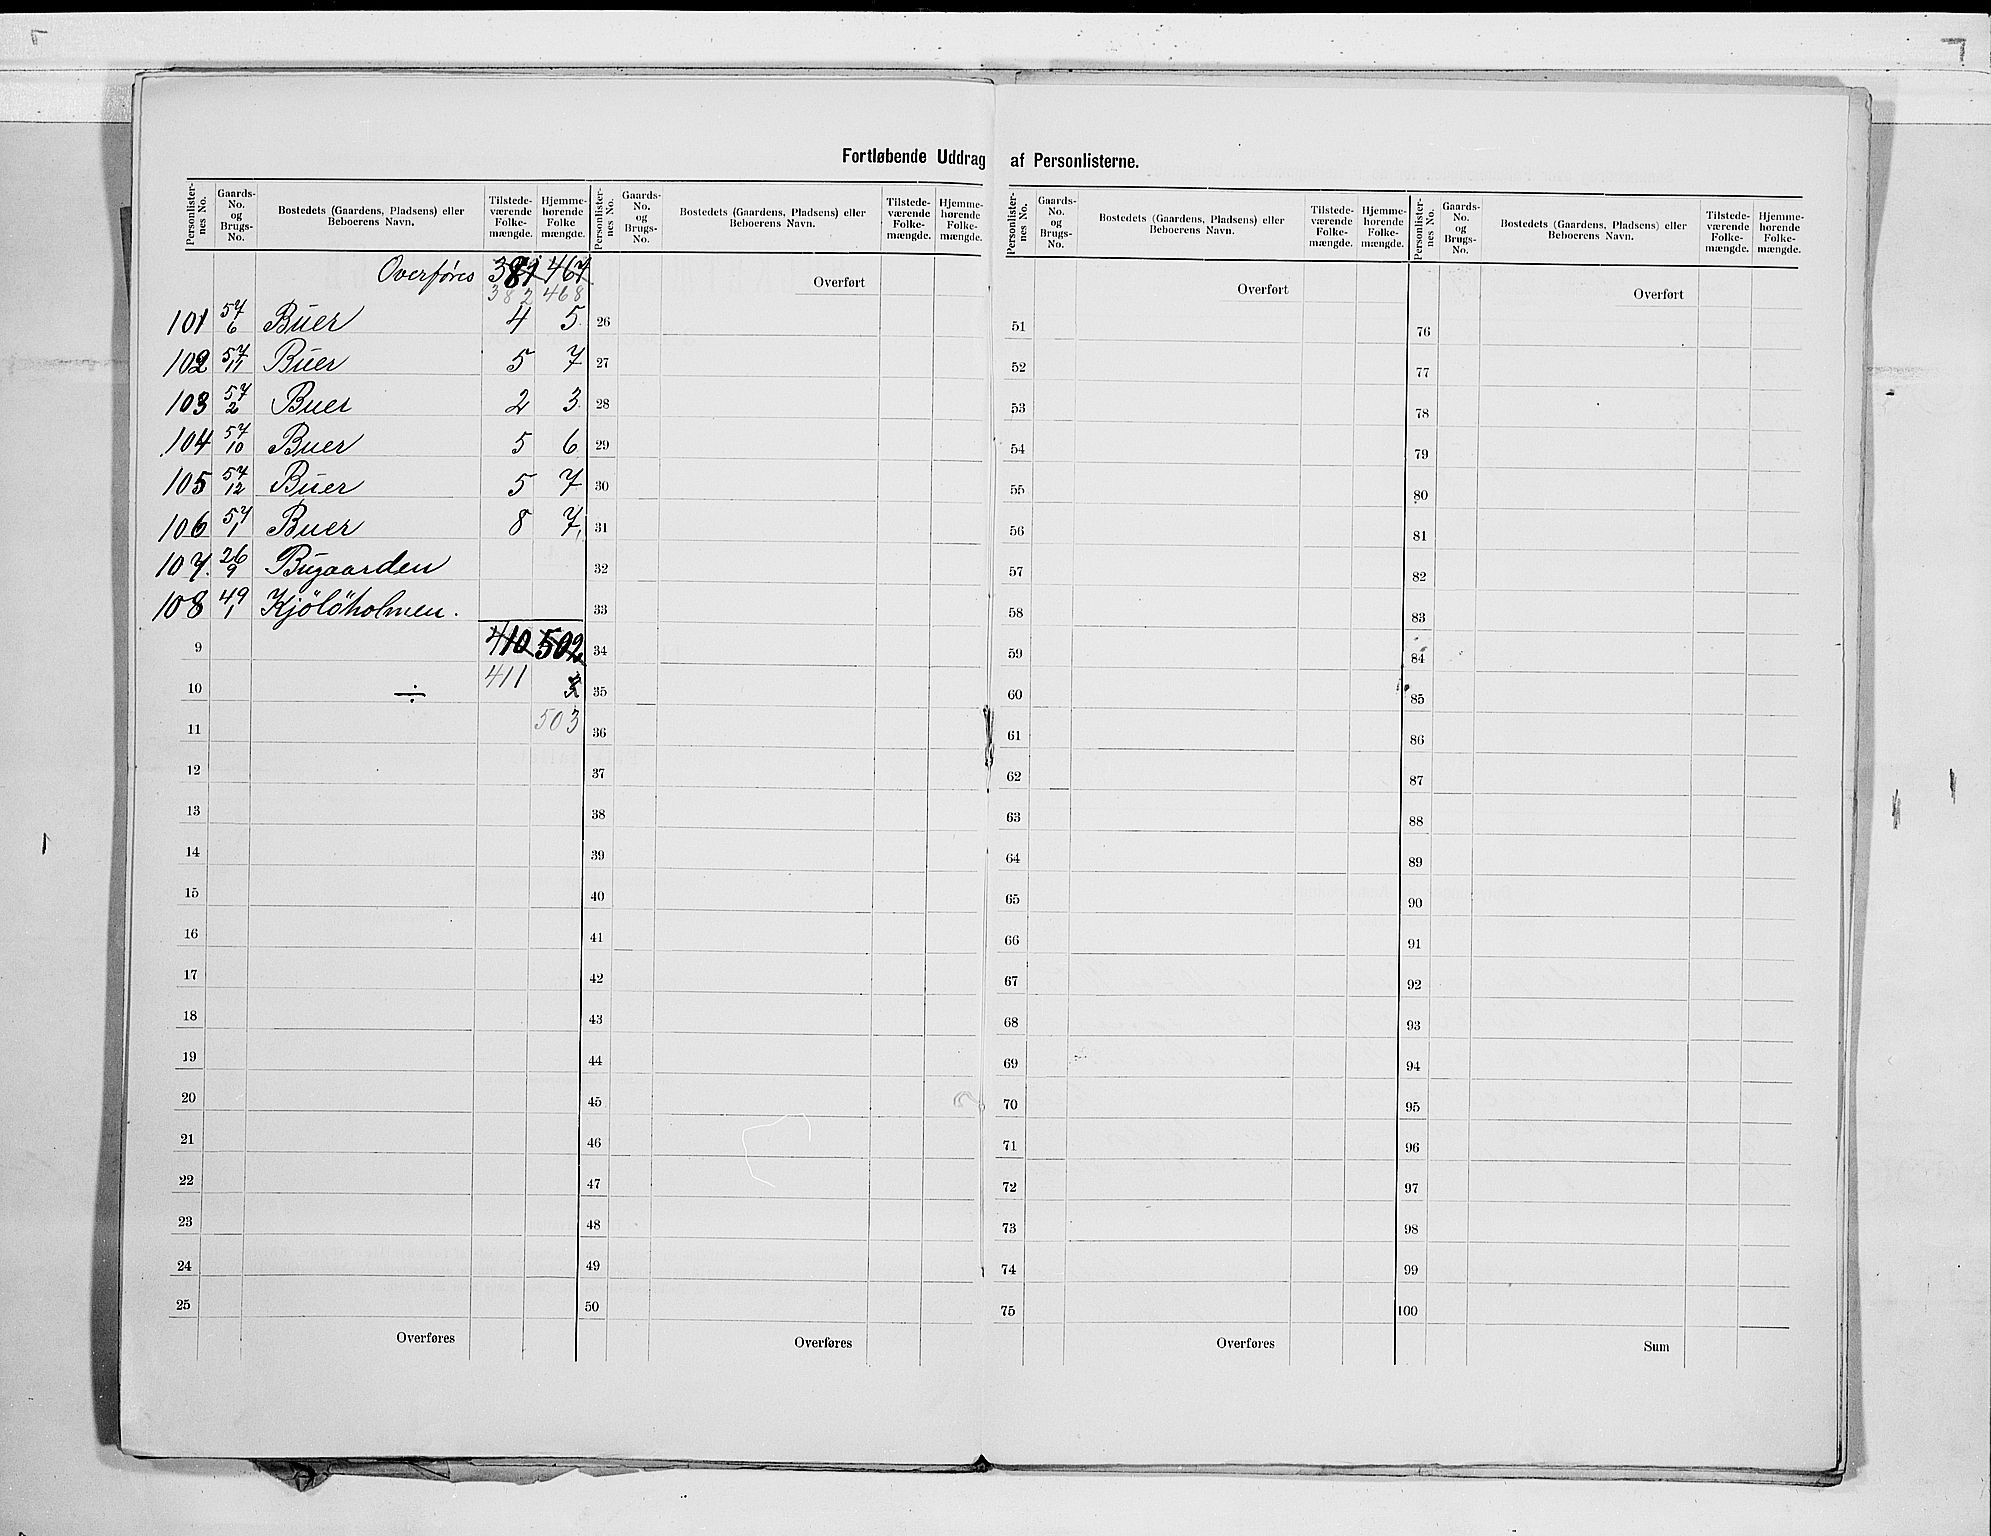 Fortløbende Uddrag af Personlisterne.
Personlister-nes No. | Gaards-No. og Brugs-No. | Bostedets (Gaardens, Pladsens) eller Beboerens Navn. | Tilstede-værende Folke-mængde. | Hjemme-hørende Folke mængde.
Personlister-nes No. | Gaards-No. og Brugs-No. | Bostedets (Gaardens, Pladsens) eller Beboerens Navn. | Tilstede-værende Folke-mængde. | Hjemme-hørende Folke-mængde.
Personlister-nes No. | Gaards-No. og Brugs-No. | Bostedets (Gaardens, Pladsens) eller Beboerens Navn. | Tilstede-værende Folke-mængde. | Hjemme-hørende Folke-mængde.
Personlister-nes No. | Gaards-No. og Brugs-No. | Bostedets (Gaardens, Pladsens) eller Beboerens Navn. | Tilstede-værende Folke-mængde. | Hjemme-hørende Folke-mængde.
Overføres 381 467
382 468
101 57/6 Buer 4 5
102 57/11 Buer 5 7
103 57/2 Buer 2 3
104 57/10 Buer 5 6
105 57/12 Buer 5 7
106 57/1 Buer 8 7
107. 26/9 Bugaarden
108 49/1 Kjölöholmen.
9 410 502
10 ÷ 411
11 503
12
13
14
15
16
17
18
19
20
21
22
23
24
25
Overføres
Overført
26
27
28
29
30
31
32
33
34
35
36
37
38
39
40
41
42
43
44
45
46
47
48
49
50
Overføres
Overført
51
52
53
54
55
56
57
58
59
60
61
62
63
64
65
66
67
68
69
70
71
72
73
74
75
Overføres
Overført
76
77
78
79
80
81
82
83
84
85
86
87
88
89
90
91
92
93
94
95
96
97
98
99
100
Sum